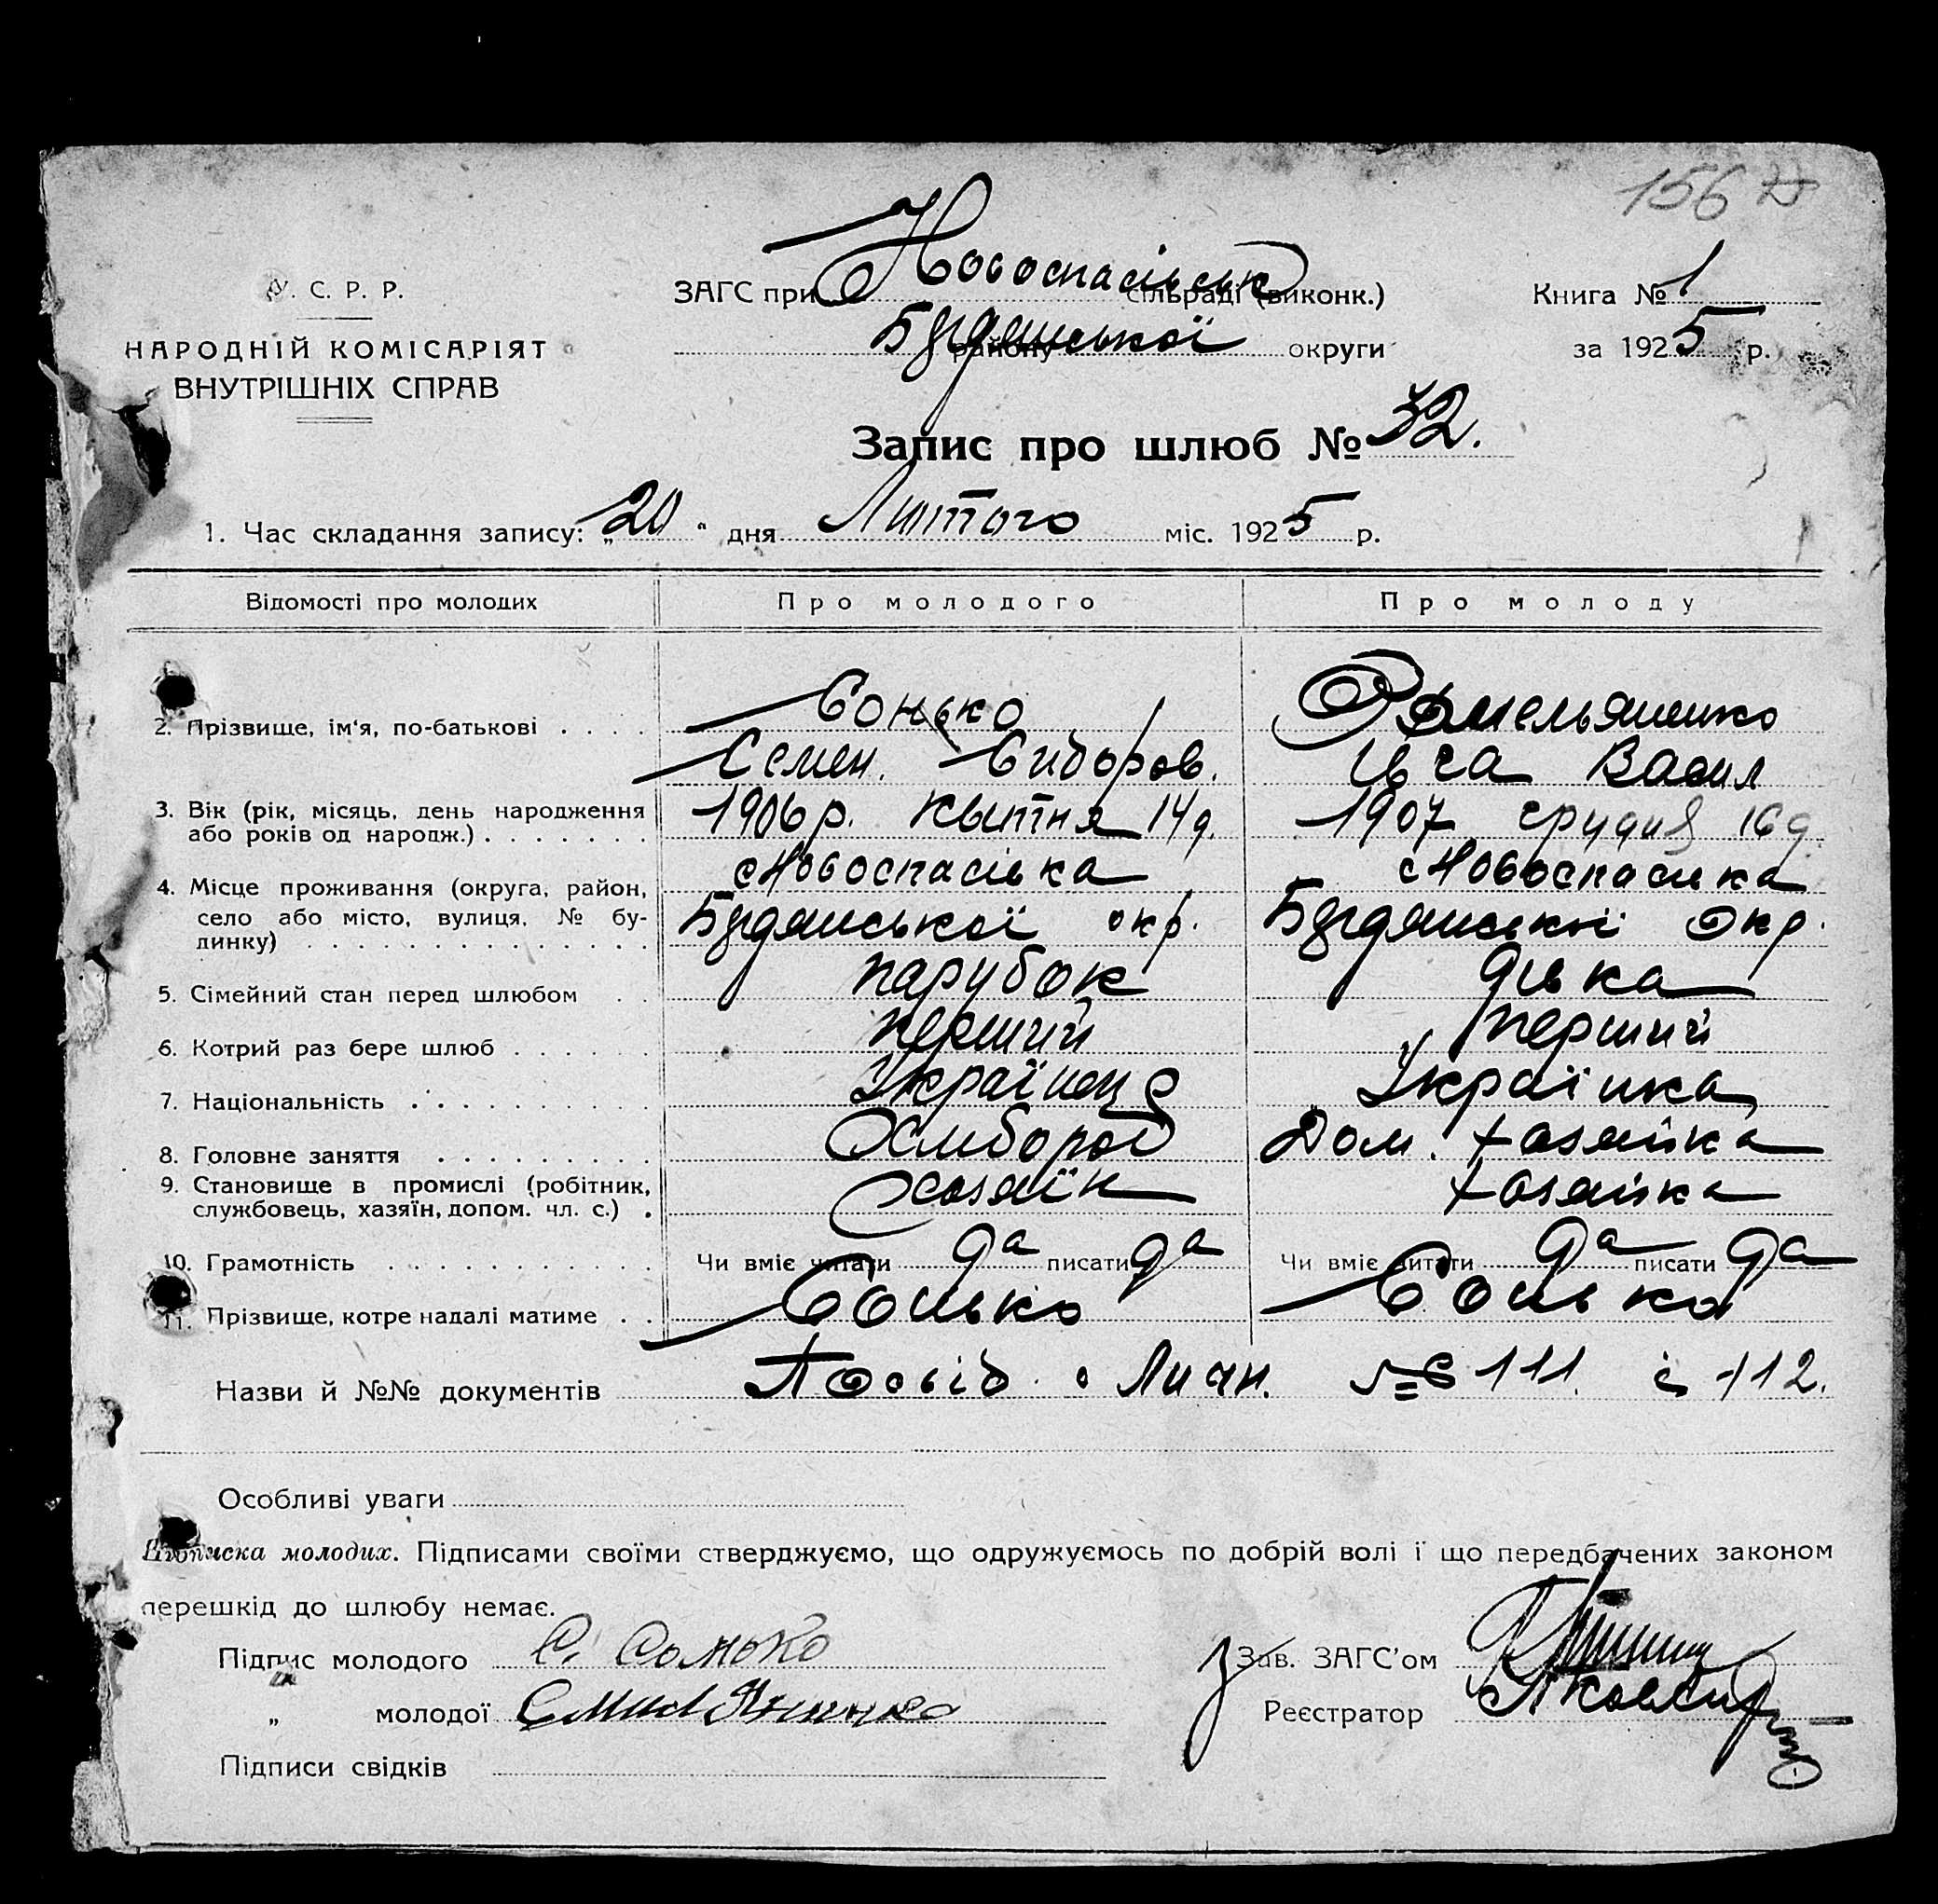 156
У. С. Р. Р.
НАРОДНІЙ КОМІСАРІЯТ
ВНУТРІШНІХ СПРАВ
ЗАГС при Новоспасівськ сільраді (виконк.)
району Бердянської округи
Книга № 1
за 1925 р.
Запис про шлюб № 32.
1. Час складання запису: „20" дня Лютого міс. 1925 р.
Відомості про молодих Про молодого Про молоду
2. Прізвище, ім'я, по-батькові . . . . Сонько Омельяненко
Семен. Сидоров. Ивга Васил
3. Вік (рік, місяць, день народження 1906 р. Квітня 14 д. 1907 грудня 16 д
або років од нарoдж.) . . . . . . .
4. Місце проживання (округа, район, с Новоспасівка с Новоспасивка
село або місто, вулиця, № бу- Бердянської окр. Бердянської Окр.
динку) . . . . . . . . . . . . . .
5. Сімейний стан перед шлюбом . . парубок дівка
6. Котрий раз бере шлюб . . . . . . перший перший
7. Національність . . . . . . . . . Українец Українка
8. Головне заняття . . . . . . . . . Хлибороб Дом. Хозяйка
9. Становище в промислі (робітник, Хозяїн Хозяйка
службовець, хазяїн, допом. чл. с.) .
10. Грамотність . . . . . . . . . . . Чи вміє читати да писати да Чи вміє читати да писати да
11. Прізвище, котре надалі матиме . . Сонько Сонько
Назви й №№ документів Посвід. Личн. № 111. і 112.
Особливі уваги
Підписка молодих. Підписами своїми стверджуємо, що одружуємось по добрій волі ї що передбачених законом
перешкід до шлюбу немає.
Підпис молодого С. Сонько
Зав. ЗАГС'ом
„ молодої Омильяненко
Реєстратор
Підписи свідків